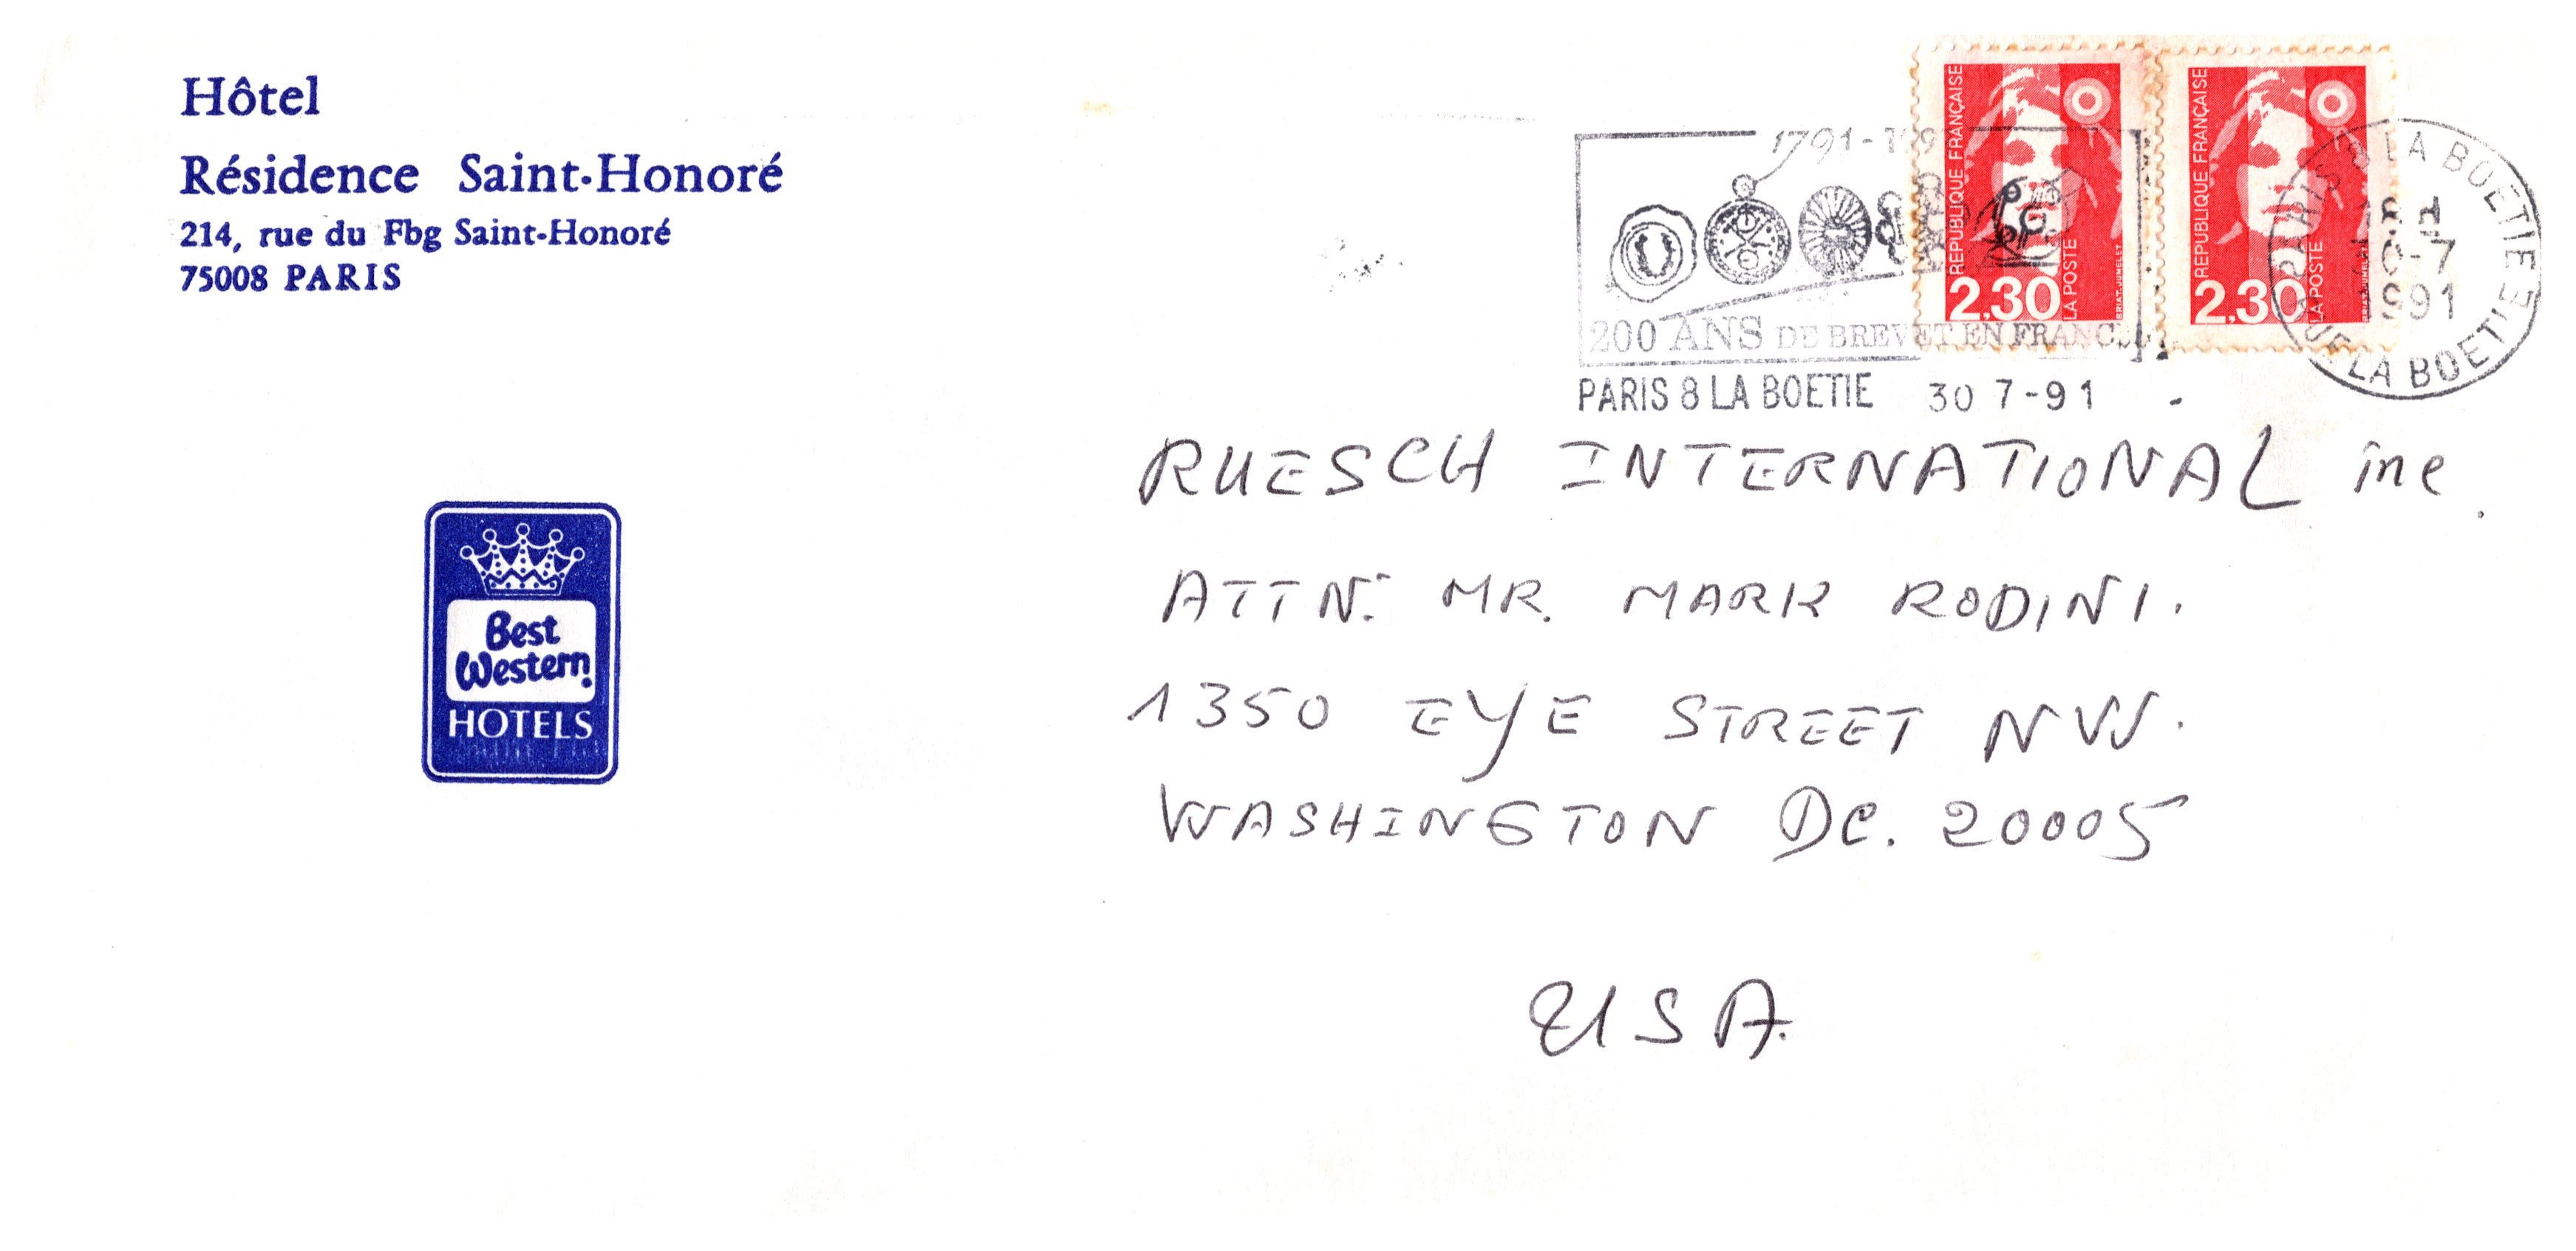 Hôtel
Résidence Saint-Honoré
214, rue du Fbg Saint-Honoré
75008 PARIS
Best
Western!
HOTELS
1791-199
200 ANS DE BREVET EN FRANC
PARIS 8 LA BOETIE 30 7-91
REPUBLIQUE FRANÇAISE
2,30
LA POSTE
BRIAT-JUMELET
REPUBLIQUE FRANÇAISE
2,30
LA POSTE
BRIAT-JUMELET
PARIS 8 LA BOETIE
18 H
0-7
1991
RUE LA BOETIE
RUESCH INTERNATIONAL inc.
ATTN: MR. MARK RODINI.
1350 EYE STREET NW.
WASHINGTON DC. 20005
USA.